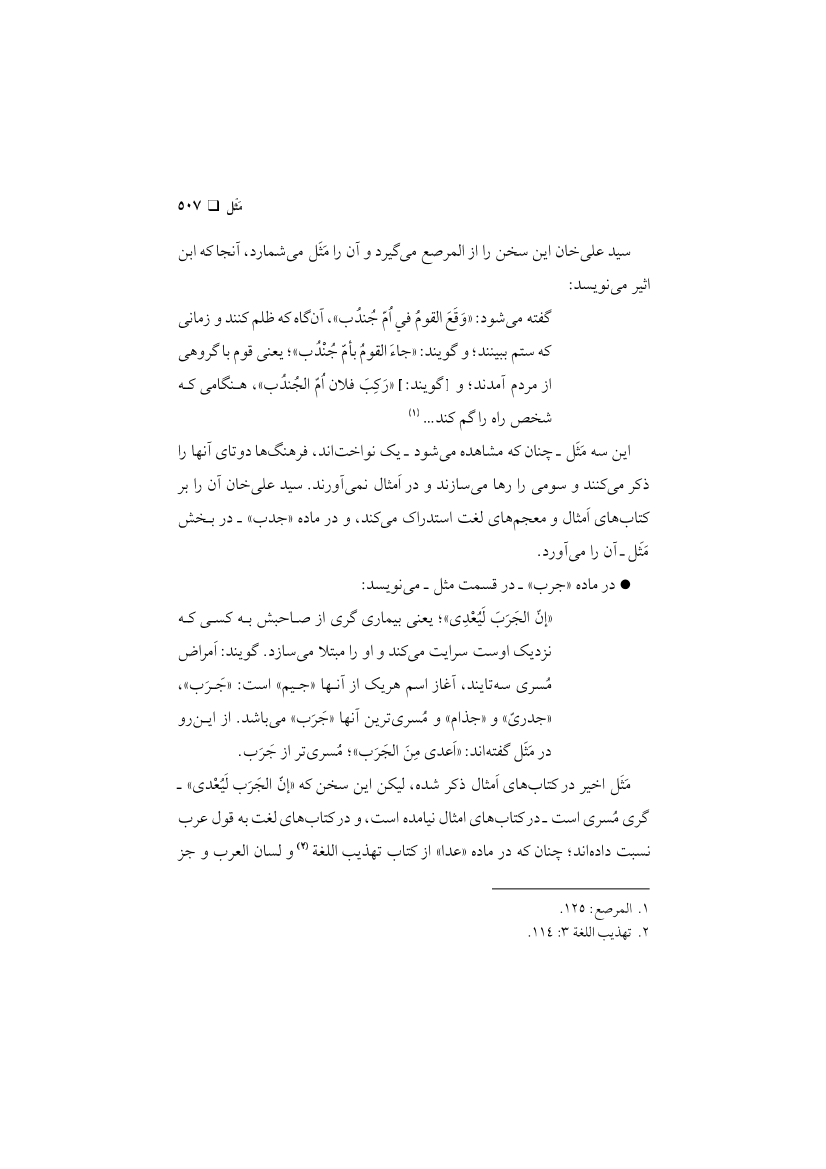 مَثَل ❑ ٥٠٧
سید علی‌خان این سخن را از المرصع می‌گیرد و آن را مَثَل می‌شمارد، آنجا که ابن
اثیر می‌نویسد:
گفته می‌شود: «وَقَعَ القومُ في اُمّ جُندُب»، آن‌گاه که ظلم کنند و زمانی
که ستم ببینند؛ و گویند: «جاءَ القومُ بأمّ جُنْدُب»؛ یعنی قوم با گروهی
از مردم آمدند؛ و [گویند:] «رَکِبَ فلان اُمّ الجُندُب»، هـنگامی کـه
شخص راه را گم کند... (١)
این سه مَثَل ـ چنان که مشاهده می‌شود ـ یک نواخت‌اند، فرهنگ‌ها دوتای آنها را
ذکر می‌کنند و سومی را رها می‌سازند و در اَمثال نمی‌آورند. سید علی‌خان آن را بر
کتاب‌های اَمثال و معجم‌های لغت استدراک می‌کند، و در ماده «جدب» ـ در بـخش
مَثَل ـ آن را می‌آورد.
● در ماده «جرب» ـ در قسمت مثل ـ می‌نویسد:
«إنّ الجَرَبَ لَیُعْدِی»؛ یعنی بیماری گری از صـاحبش بـه کسـی کـه
نزدیک اوست سرایت می‌کند و او را مبتلا می‌سازد. گویند: اَمراض
مُسری سه‌تایند، آغاز اسم هریک از آنـها «جـیم» است: «جَـرَب»،
«جدریّ» و «جذام» و مُسری‌ترین آنها «جَرَب» می‌باشد. از ایـن‌رو
در مَثَل گفته‌اند: «اَعدی مِنَ الجَرَب»؛ مُسری‌تر از جَرَب.
مَثَل اخیر در کتاب‌های اَمثال ذکر شده، لیکن این سخن که «إنّ الجَرَب لَیُعْدی» ـ
گری مُسری است ـ در کتاب‌های امثال نیامده است، و در کتاب‌های لغت به قول عرب
نسبت داده‌اند؛ چنان که در ماده «عدا» از کتاب تهذیب اللغة (٢) و لسان العرب و جز
١. المرصع: ١٢٥.
٢. تهذیب اللغة ٣: ١١٤.